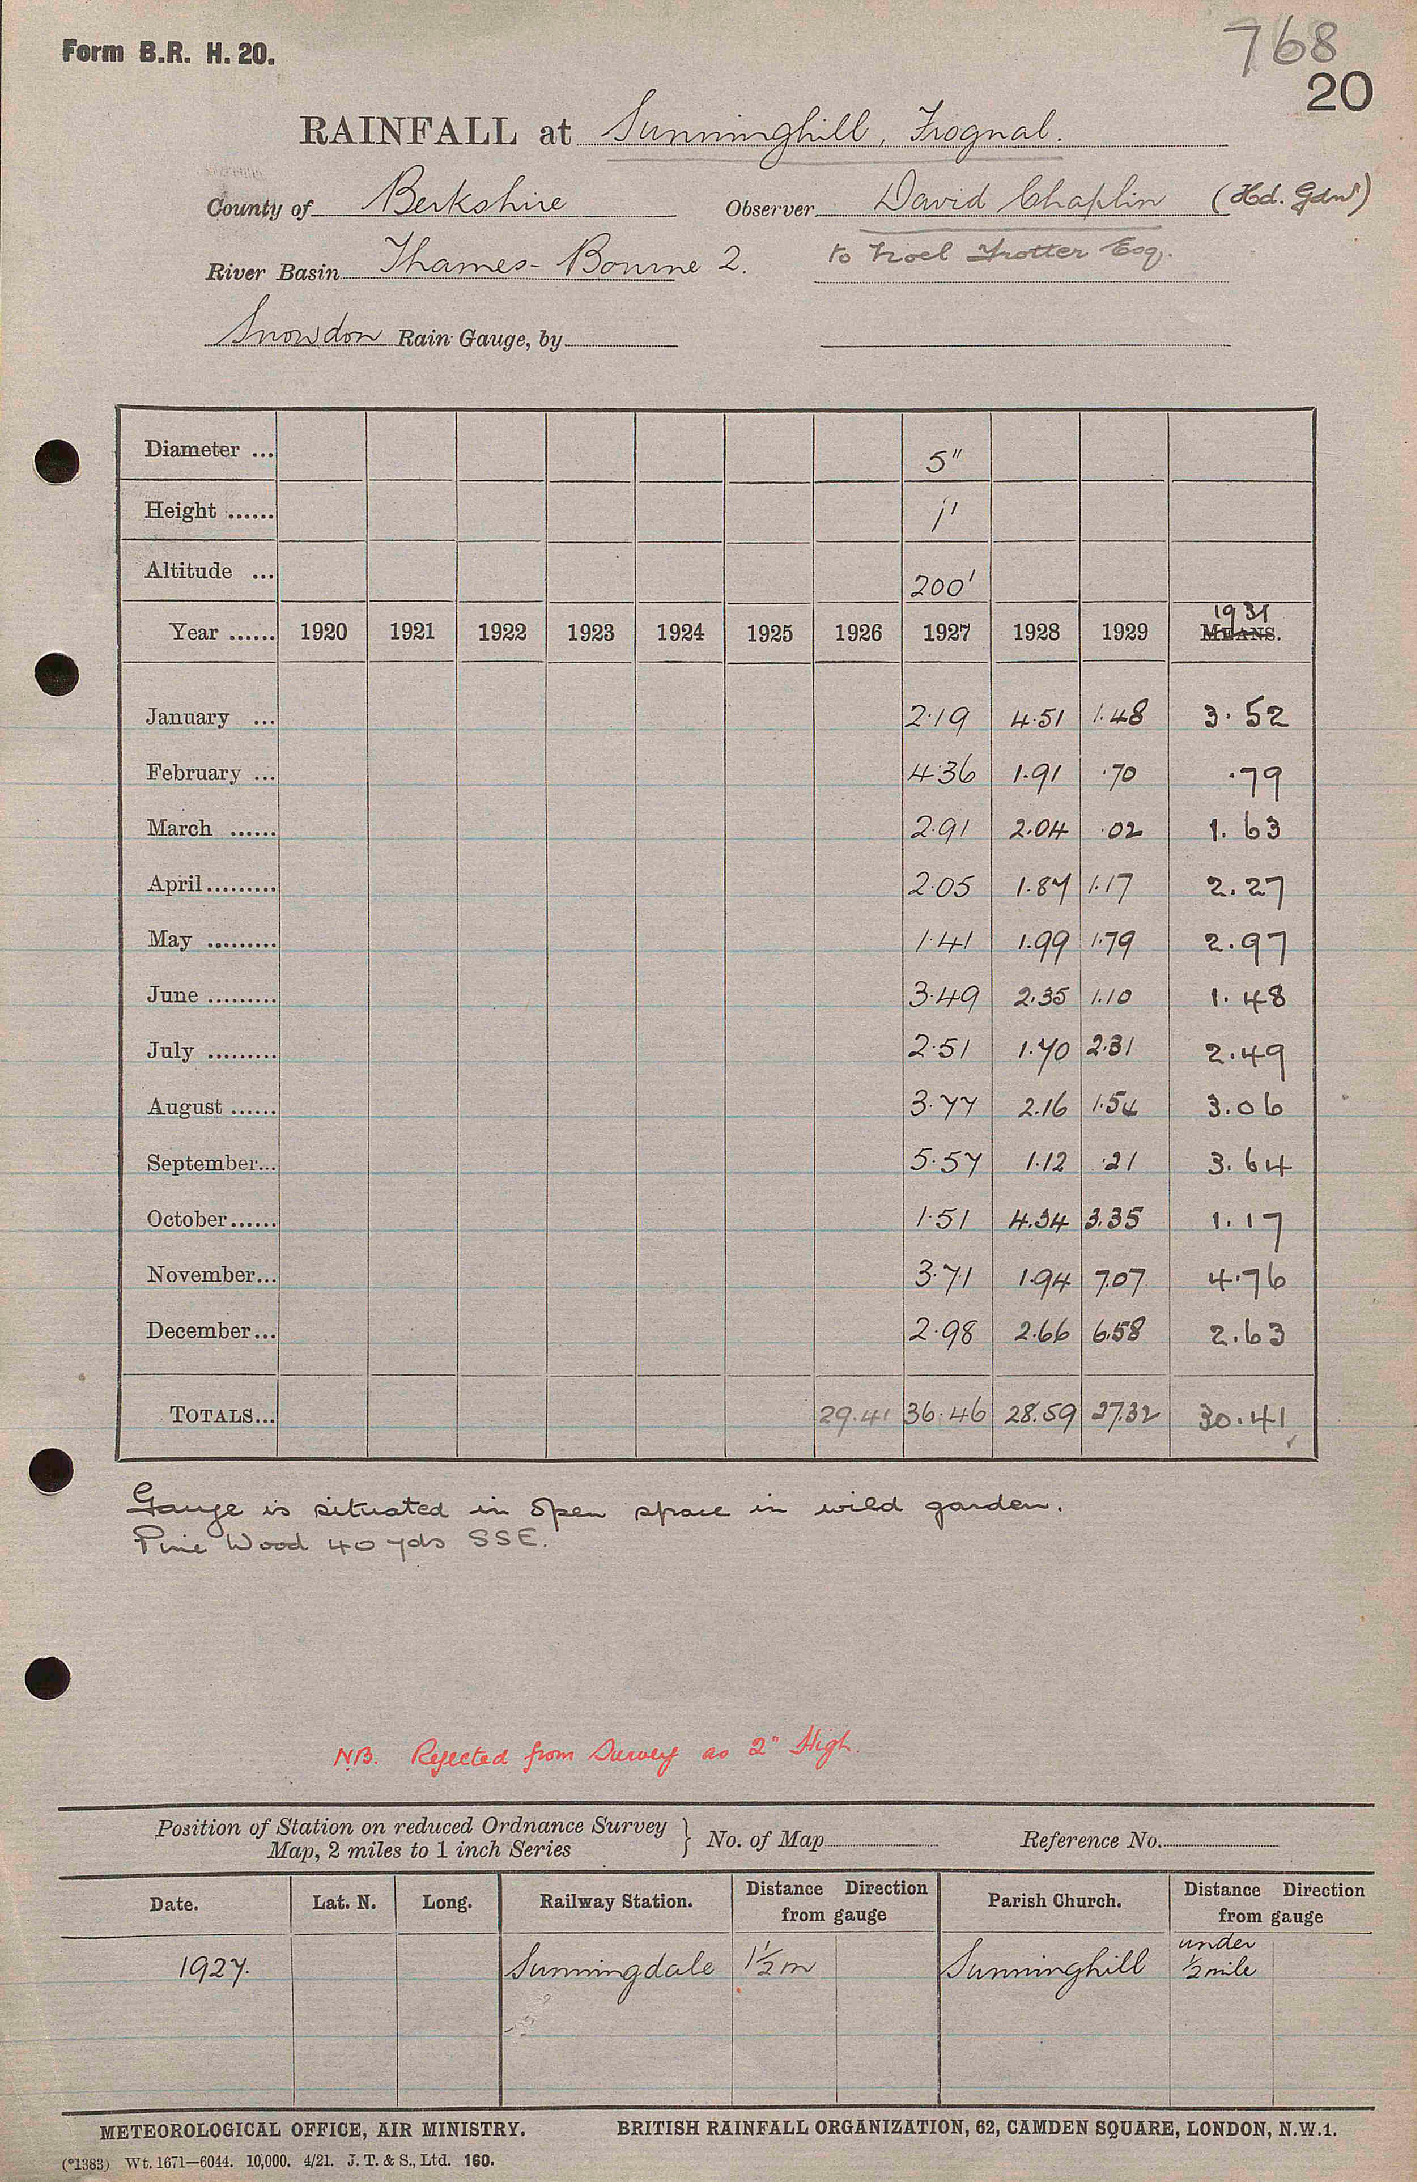 Form B.R. H. 20.
768
20
RAINFALL at Sunninghill, Frognal.
County of Berkshire Observer David Chaplin (Hd. Gdnr)
River Basin Thames - Bourne 2. to Noel Trotter Esq.
Snowdon Rain Gauge, by
Diameter ... 5"
Height ...... 1'
Altitude ... 200'
1931
Year ...... 1920 1921 1922 1923 1924 1925 1926 1927 1928 1929 MEANS.
January ... 2.19 4.51 1.48 3.52
February ... 4.36 1.91 .70 .79
March ...... 2.91 2.04 .02 1.63
April ......... 2.05 1.87 1.17 2.27
May ......... 1.41 1.99 1.79 2.97
June ......... 3.49 2.35 1.10 1.48
July ......... 2.51 1.70 2.31 2.49
August ...... 3.77 2.16 1.54 3.06
September... 5.57 1.12 .21 3.64
October ...... 1.51 4.34 3.35 1.17
November... 3.71 1.94 7.07 4.76
December ... 2.98 2.66 6.58 2.63
TOTALS... 29.41 36.46 28.59 27.32 30.41
Gauge is situated in open space in wild garden.
Pine Wood 40 yds SSE.
NB. Rejected from Survey as 2" High.
Position of Station on reduced Ordnance Survey
Map, 2 miles to 1 inch Series } No. of Map Reference No.
Date. Lat. N. Long. Railway Station. Distance Direction from gauge Parish Church. Distance Direction from gauge
1927. Sunningdale 1½ m Sunninghill under ½ mile
METEOROLOGICAL OFFICE, AIR MINISTRY. BRITISH RAINFALL ORGANIZATION, 62, CAMDEN SQUARE, LONDON, N.W.1.
(*1383) Wt. 1671—6044. 10,000. 4/21. J. T. & S., Ltd. 160.